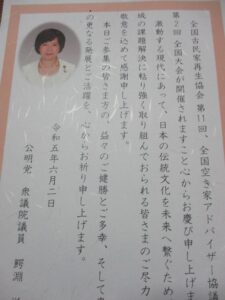 全国古民家再生協会 第11回、全国空き家アドバイザー協議
第2回 全国大会が開催されますこと心からお慶び申し上げ
激動する現代にあって、日本の伝統文化を未来へ繋ぐため
域の課題解決に粘り強く取り組んでおられる皆さまのご尽力
敬意を込めて感謝申し上げます。
本日ご参集の皆さま方の、益々のご健勝とご多幸、そして
の更なる発展とご活躍を、心からお祈り申し上げます。
令和五年六月二日
公明党 衆議院議員 鰐淵